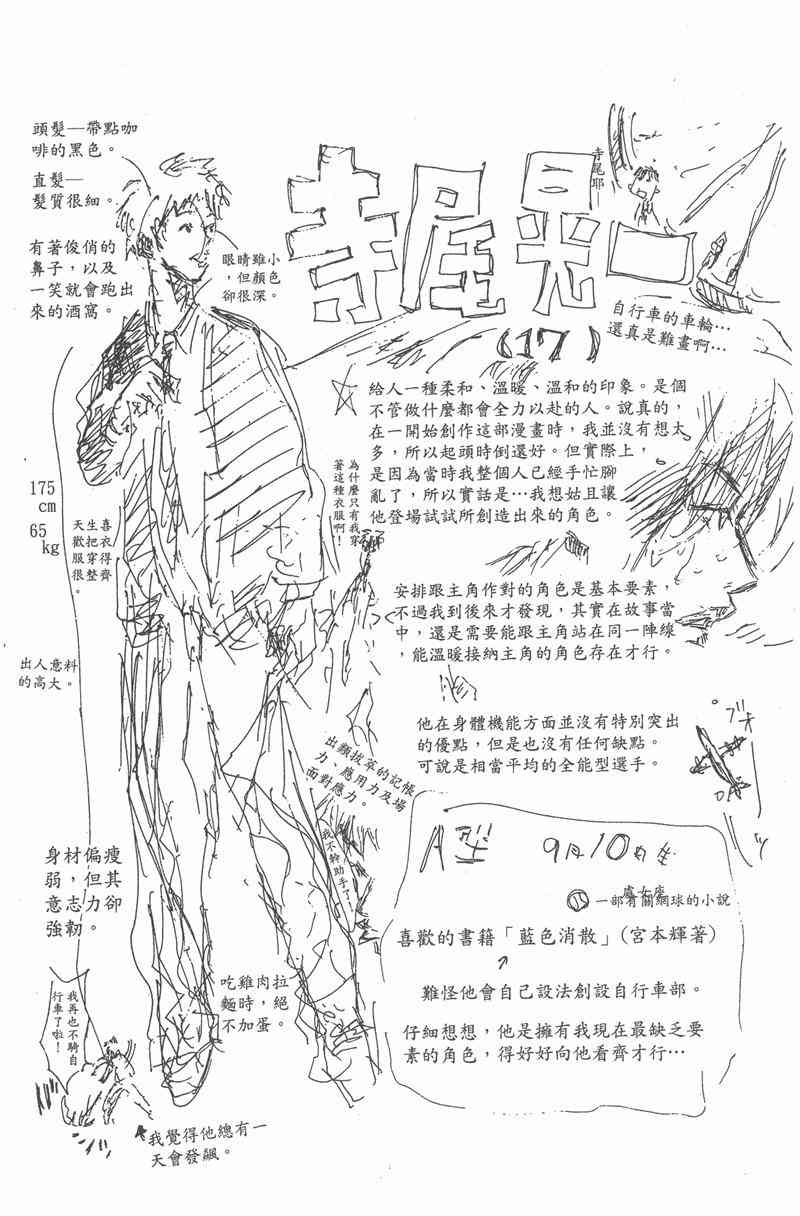 寺尾晃一
(17)
頭髮—帶點咖
啡的黑色。
直髮—
髮質很細。
有著俊俏的
鼻子，以及
一笑就會跑出
來的酒窩。
眼睛雖小
，但顏色
卻很深。
寺尾耶—
自行車的車輪…
還真是難畫啊…
給人一種柔和、溫暖、溫和的印象。是個
不管做什麼都會全力以赴的人。說真的，
在一開始創作這部漫畫時，我並沒有想太
多，所以起頭時倒還好。但實際上，
是因為當時我整個人已經手忙腳
亂了，所以實話是…我想姑且讓
他登場試試所創造出來的角色。
為什麼只有我穿
著這種衣服啊！
175
cm
65
kg
喜衣得
生把穿齊
天歡服很整
。
安排跟主角作對的角色是基本要素，
不過我到後來才發現，其實在故事當
中，還是需要能跟主角站在同一陣線
，能溫暖接納主角的角色存在才行。
出人意料
的高大。
他在身體機能方面並沒有特別突出
的優點，但是也沒有任何缺點。
可說是相當平均的全能型選手。
出類拔萃的記帳
力、應用力及場
面對應力。
我不幹助手了！
A型 9月10日生
處女座
一部有關網球的小說
喜歡的書籍「藍色消散」(宮本輝著)
難怪他會自己設法創設自行車部。
仔細想想，他是擁有我現在最缺乏要
素的角色，得好好向他看齊才行…
身材偏瘦
弱，但其
意志力卻
強韌。
吃雞肉拉
麵時，絕
不加蛋。
我再也不騎自
行車了啦！
我覺得他總有一
天會發飆。